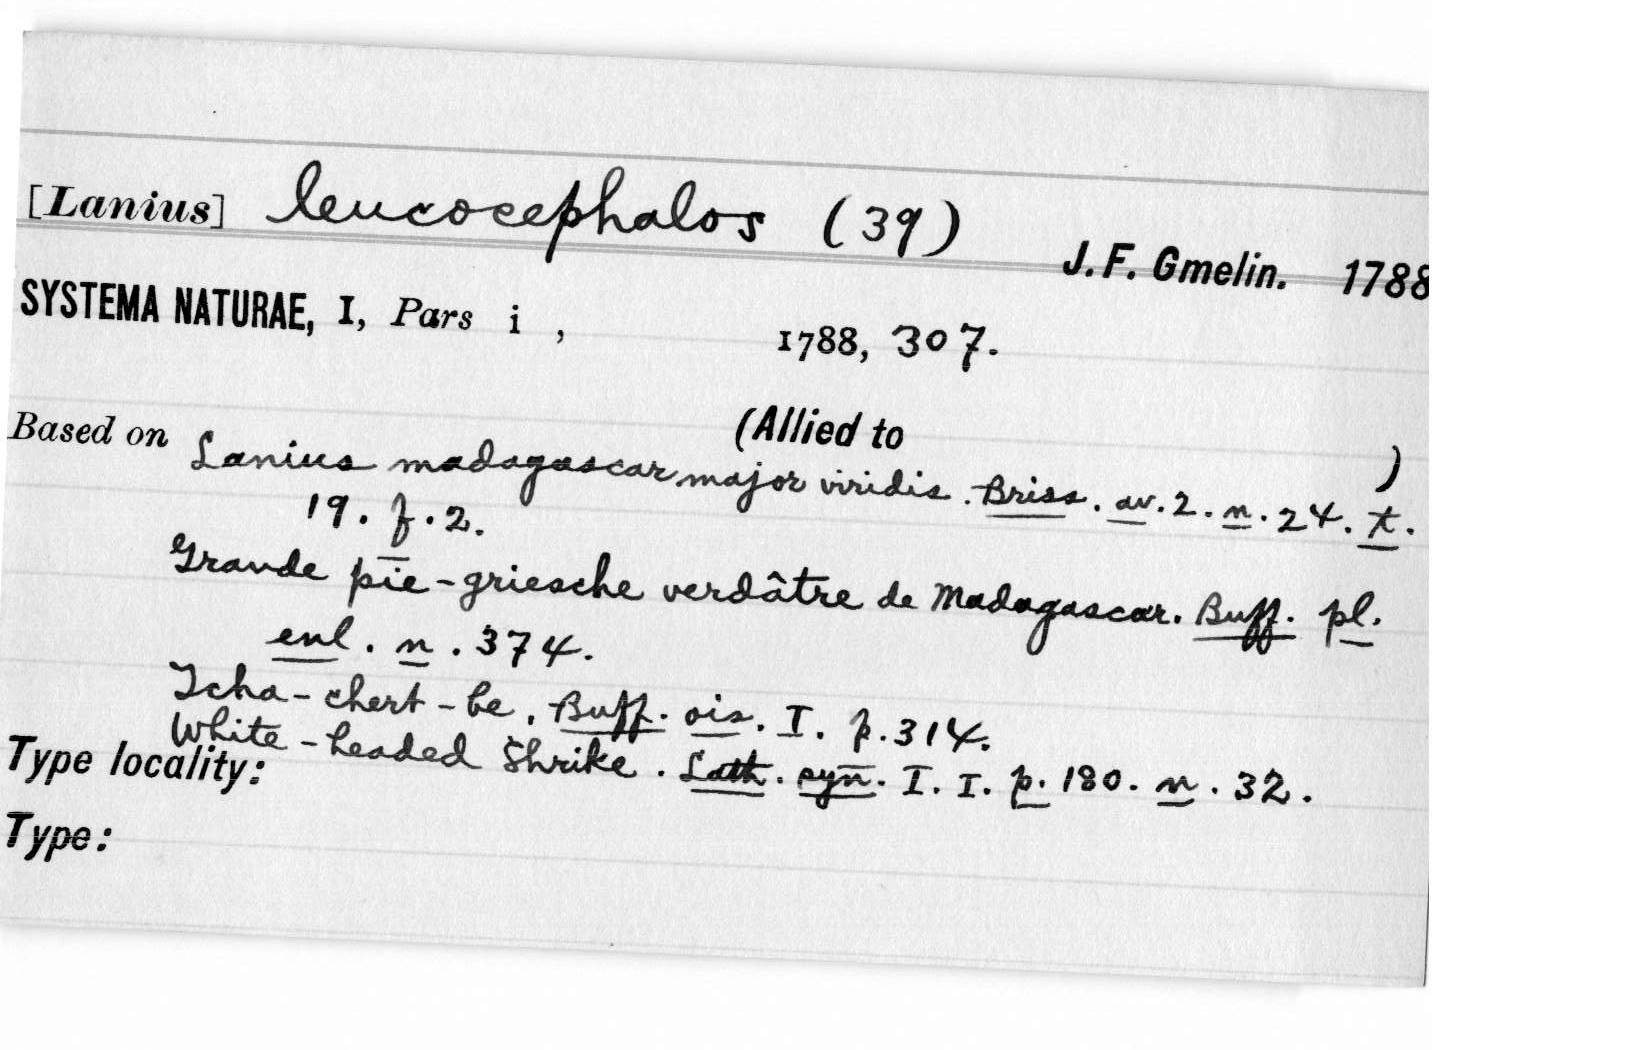 [Lanius] leucocephalos (39)
J. F. Gmelin. 1788
SYSTEMA NATURAE, I, Pars i , 1788, 307.
(Allied to )
Based on Lanius madagascar major viridis. Briss. av. 2. n. 24. t.
19. f. 2.
Grande pie-griesche verdâtre de Madagascar. Buff. pl.
enl. n. 374.
Tcha-chert-be, Buff. ois. I. p. 314.
White-headed Shrike. Lath. syn. I. I. p. 180. n. 32.
Type locality:
Type: